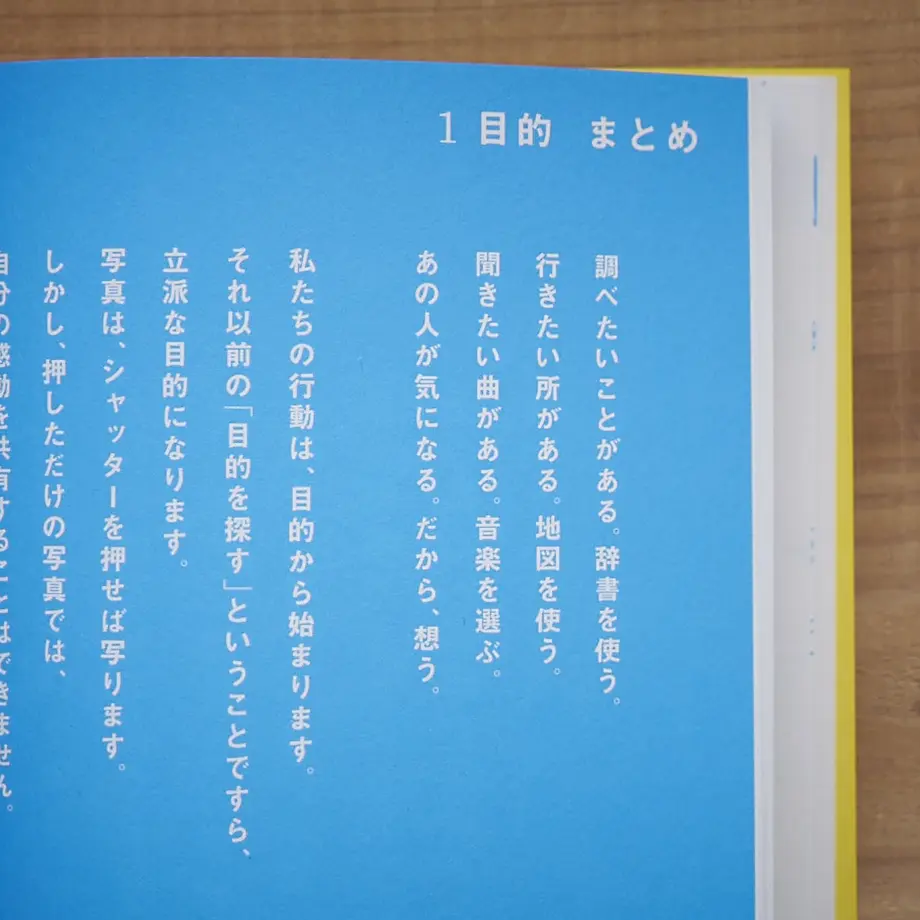 1 目的 まとめ
調べたいことがある。辞書を使う。
行きたい所がある。地図を使う。
聞きたい曲がある。音楽を選ぶ。
あの人が気になる。だから、想う。
私たちの行動は、目的から始まります。
それ以前の「目的を探す」ということですら、
立派な目的になります。
写真は、シャッターを押せば写ります。
しかし、押しただけの写真では、
自分の感動を共有することはできません。